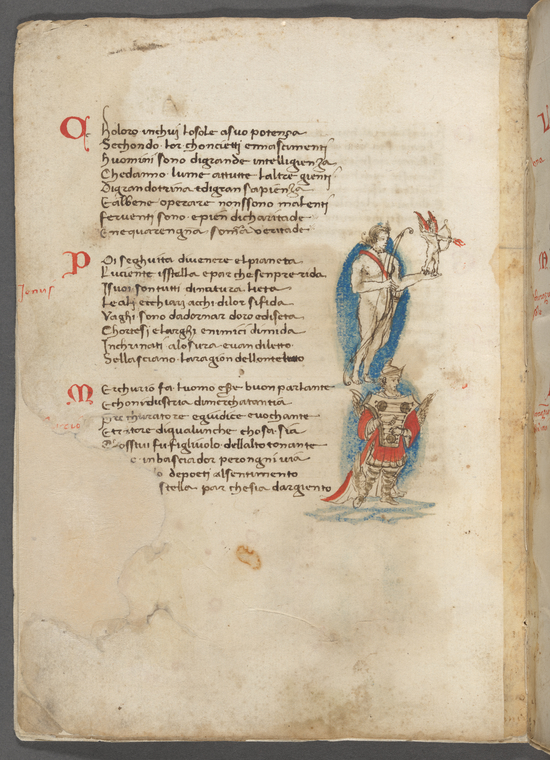 Choloro inchui losole asuo potenza
Sechondo lor chonciettj ennascimentj
Huominj sono digrande intelligienza
Chedanno lume attutte laltre gientj
Digrandotrina edigran sapienza
Ealbene operare nonssono malentj
Ferventi sono epien dicharitade
Enequarengna somã veritade
Poi seghuita divenere elpianeta
Luciente isstella epar che senpre rida
Isuoi son tutti dinatura lieta
Leali etchiarj archi dilor sifida
Vaghi sono dadornar doro ediseta
Chortesi elarghi enimici dimida
Inchrinati alosura evan diletto
Sollasciano laragion
Venus
Merchurio fa luomo esse buon parlante
Echonidustria dimerchatantia
Prochuratore egiudice evochante
Etratore diqualunche chosa sia
Chossui fu figliuolo dellalto tonante
e inbasciador perongni via
o depoeti alsentimento
stella par chesia dargiento